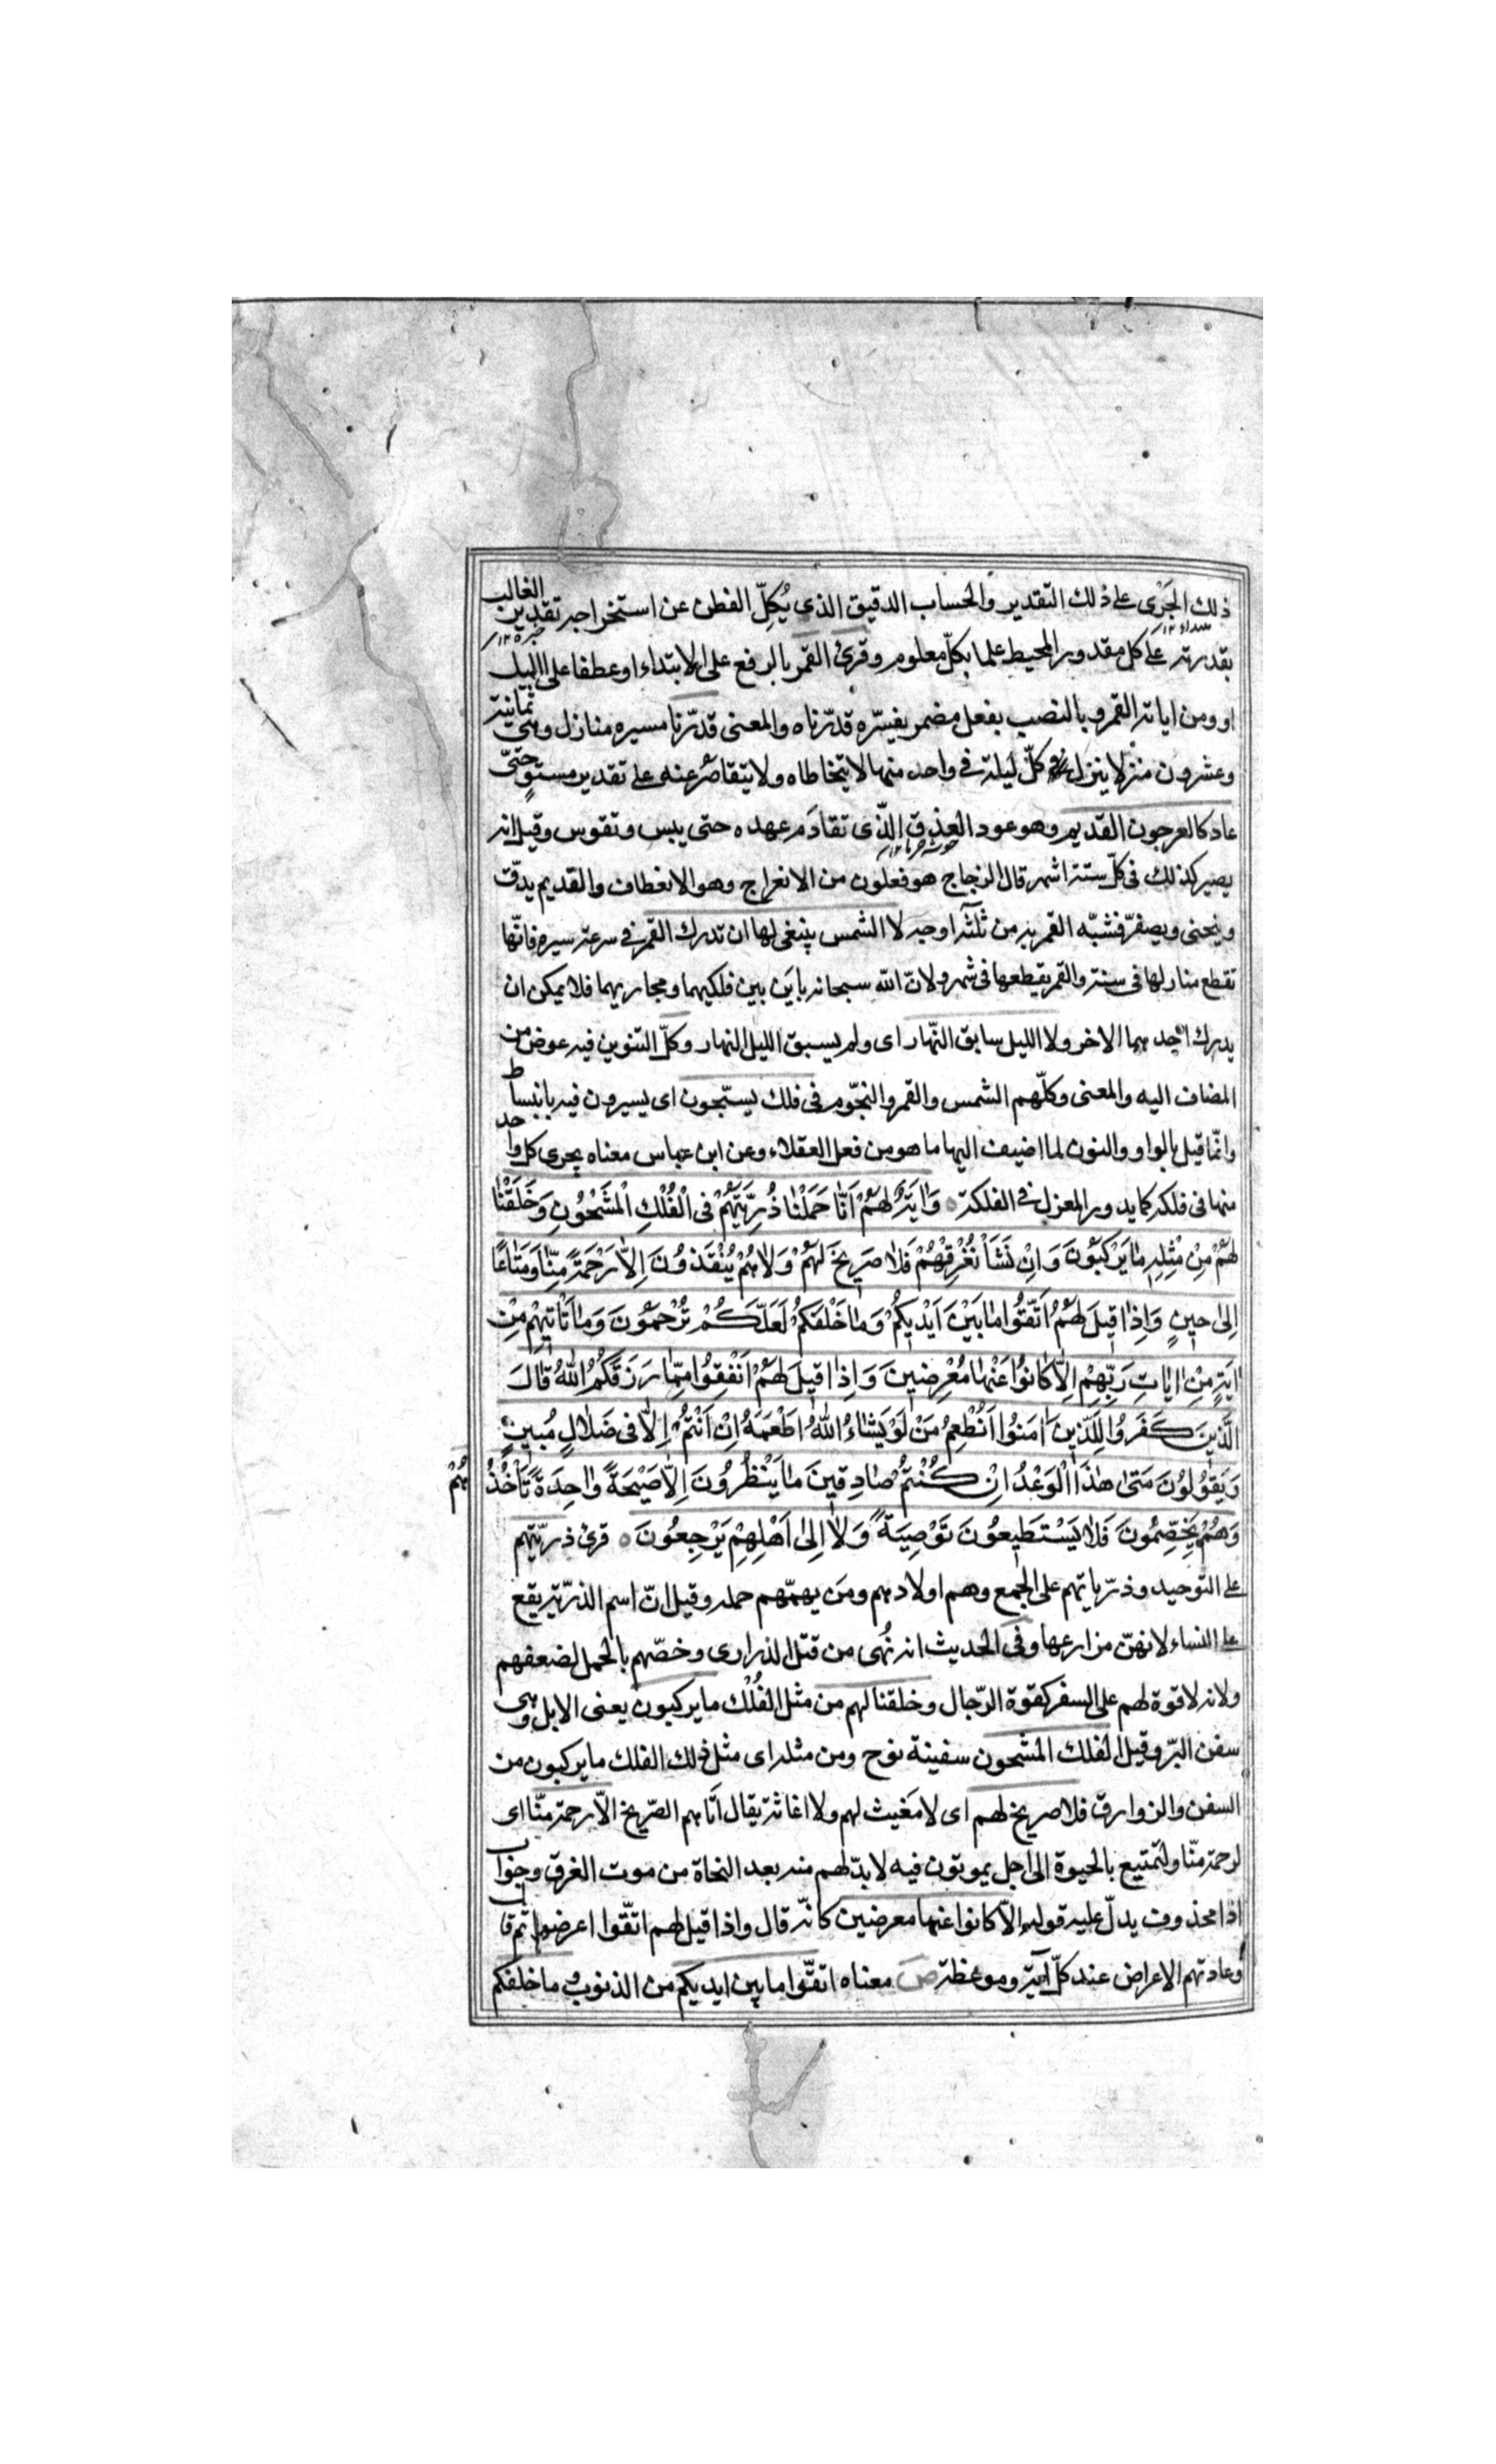 ذلك الجَرْى على ذلك التقدير والحساب الدقيق الذى يُكِلّ الفطن عن استخراجه تقدير الغالب
بقدرته على كل مقدور المحيط علما بكلّ معلوم وقرئ القمر بالرفع على الابتداء او عطفا على الليل
او ومن اياته القمر وبالنصب بفعل مضمر يفسّره قدّرناه والمعنى قدّرنا مسيره منازل وهى ثمانية
وعشرون منزلا ينزل كلّ ليلة فى واحد منها لا يتخاطاه ولا يتقاصر عنه على تقدير مستوٍ حتّى
عاد كالعرجون القديم وهو عود العذق الّذى تقادَم عهده حتى يبس وتقوس وقيل انه
يصير كذلك فى كلّ ستة اشهر قال الزجاج هو فعلون من الانعراج وهو الانعطاف والقديم يدقّ
وينحنى ويصفرّ فشبّه القمر به من ثلثة اوجه لا الشمس ينبغى لها ان تدرك القمر فى سرعة سيره فانّها
تقطع منازلها فى سنة والقمر يقطعها فى شهر ولانّ اللّه سبحانه باين بين فلكيهما ومجاريهما فلا يمكن ان
يدرك احدهما الاخر ولا الليل سابق النّهار اى ولم يسبق الليل النهار وكلّ التنوين فيه عوض من
المضاف اليه والمعنى وكلّهم الشمس والقمر والنجّوم فى فلك يسبّحون اى يسيرون فيه بانبساط
وانّما قيل بالواو والنون لما اضيف اليها ما هو من فعل العقلاء وعن ابن عباس معناه يجرى كل واحد
منها فى فلكه كما يدور المغزل فى الفلكة ه وَاٰيَةٌ لَهُمْ اَنّٰا حَمَلْنٰا ذُرِّيَّتَهُمْ فِى الْفُلْكِ الْمَشْحُوْنِ وَخَلَقْنٰا
لَهُمْ مِنْ مِثْلِهِ مٰا يَرْكَبُوْنَ وَاِنْ نَشَأْ نُغْرِقْهُمْ فَلٰا صَرِيْخَ لَهُمْ وَلٰا هُمْ يُنْقَذُوْنَ اِلاّٰ رَحْمَةً مِنّٰا وَمَتٰاعًا
اِلىٰ حِيْنٍ وَاِذٰا قِيْلَ لَهُمُ اتَّقُوْا مٰا بَيْنَ اَيْدِيْكُمْ وَمٰا خَلْفَكُمْ لَعَلَّكُمْ تُرْحَمُوْنَ وَمٰا تَأْتِيْهِمْ مِنْ
اٰيَةٍ مِنْ اٰيٰاتِ رَبِّهِمْ اِلاّٰ كٰانُوْا عَنْهٰا مُعْرِضِيْنَ وَاِذٰا قِيْلَ لَهُمْ اَنْفِقُوْا مِمّٰا رَزَقَكُمُ اللّٰهُ قٰالَ
الَّذِيْنَ كَفَرُوْا لِلَّذِيْنَ اٰمَنُوْا اَنُطْعِمُ مَنْ لَوْ يَشٰاءُ اللّٰهُ اَطْعَمَهُ اِنْ اَنْتُمْ اِلاّٰ فِى ضَلٰالٍ مُبِيْنٍ
وَيَقُوْلُوْنَ مَتىٰ هٰذَا الْوَعْدُ اِنْ كُنْتُمْ صٰادِقِيْنَ مٰا يَنْظُرُوْنَ اِلاّٰ صَيْحَةً وٰاحِدَةً تَأْخُذُهُمْ
وَهُمْ يَخِصِّمُوْنَ فَلٰا يَسْتَطِيْعُوْنَ تَوْصِيَةً وَلٰا اِلىٰ اَهْلِهِمْ يَرْجِعُوْنَ ه قرئ ذرّيّتهم
على التوحيد وذرّياتهم على الجمع وهم اولادهم ومن يهمّهم حمله وقيل انّ اسم الذرّية يقع
على النساء لانهنّ مزارعها وفى الحديث انه نُهى من قتل الذرارى وخصّهم بالحمل لضعفهم
ولانه لا قوة لهم على السفر كقوة الرّجال وخلقنا لهم من مثل الفُلْك ما يركبون يعنى الابل وهى
سفن البرّ وقيل الفلك المشحون سفينة نوح ومن مثله اى مثل ذلك الفلك ما يركبون من
السفن والزوارق فلا صريخ لهم اى لا مغيث لهم ولا اغاثة يقال اتاهم الصّريخ الاّ رحمة منّا اى
لرحمة منّا ولتمتيع بالحيوة الى اجل يموتون فيه لا بدّ لهم منه بعد النجاة من موت الغرق وجواب
اذا محذوف يدلّ عليه قوله الاّ كانوا عنها معرضين كانّه قال واذا قيل لهم اتقّوا اعرضوا ثم قال
وعادتهم الاعراض عند كلّ آية وموعظة ص معناه اتقّوا ما بين ايديكم من الذنوب وما خلفكم